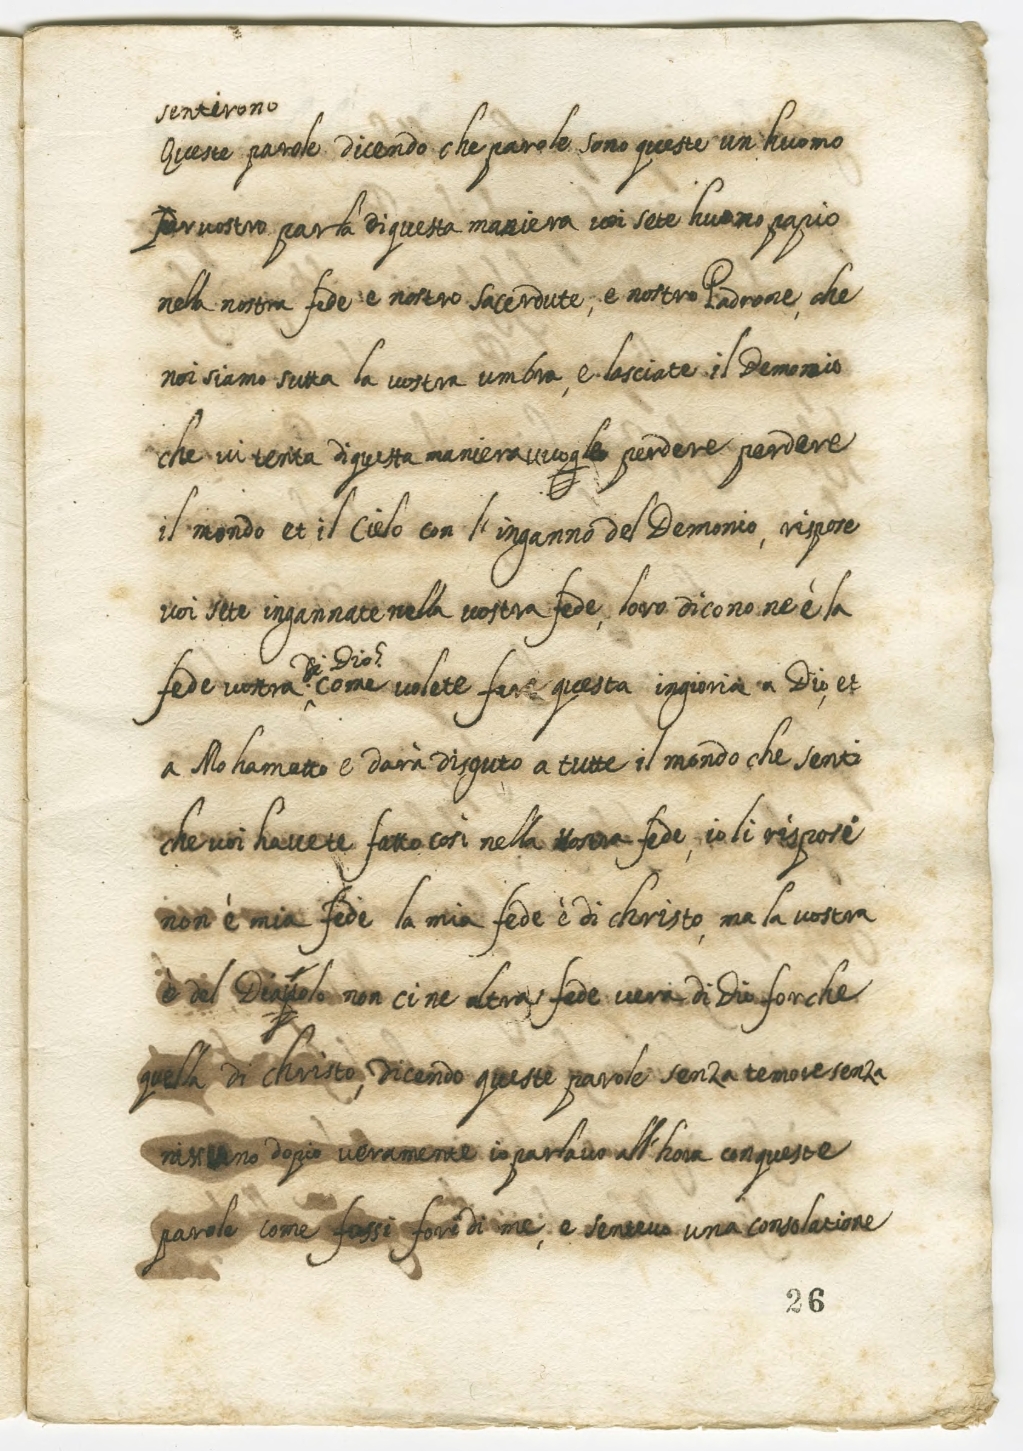 sentirono
Queste parole dicendo che parole sono queste un huomo
Par vostro parla di questa maniera voi sete huomo papio
nella nostra fede e nostro sacerdute, e nostro Padrone, che
noi siamo sutta la vostra umbra, e lasciate il Demonio
che vi tenta di questa maniera vuogle perdere perdere
il mondo et il Cielo con l'inganno del Demonio, rispose
voi sete ingannate nella vostra fede, loro dicono ne è la
fede vostra di Dio? Come volete fare questa ingioria a Dio, et
a Mohametto e darà disguto a tutte il mondo che senti
che voi havete fatto cosi nella vostra fede, io li risposi
non è mia fede la mia fede è di christo, ma la vostra
è del Diavolo non ci ne altra fede vera di Dio forche
quella di christo, dicendo queste parole senza temore senza
nissuno dopio veramente io parlavo all'hora con queste
parole come fussi fori di me, e sentevo una consolatione
26